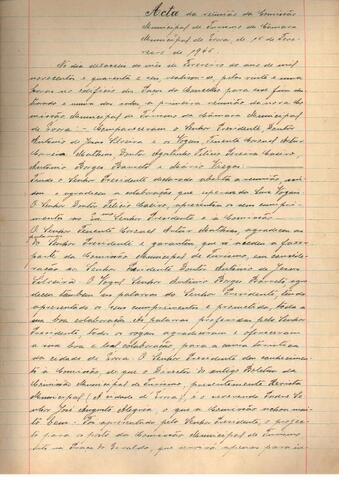 Acta da reunião da Comissão
Municipal de Turismo da Câmara
Municipal de Évora, de 18 de Feve-
reiro de 1946
No dia dezaseis do mês de Fevereiro do ano de mil
novecentos e quarenta e seis, pelas vinte e uma
horas no edifício dos Paços do Concelho para esse fim des-
tinado a uma das salas, a primeira reunião da nova Co-
missão Municipal de Turismo da Câmara Municipal
de Évora:- Compareceram o Senhor Presidente, Doutor
António de Jesus Silveira e os Vogais Tenente Coronel Artur
Matheus, Doutor Agostinho Felício Caeiro,
António Borges Barreto e Mário Viegas.
Tendo o Senhor Presidente declarado aberta a reunião,
e agradeceu a colaboração que esperada dos Vogais
O Senhor Doutor Felício Caeiro, apresentou os seus cumpri-
mentos ao Exmº Senhor Presidente e à Comissão.
O Senhor Tenente Coronel Artur Matheus, agradeceu as
palavras do Senhor Presidente e garantiu que se acedeu a fazer
parte da Comissão Municipal de Turismo, em conside-
ração ao Senhor Presidente Doutor António de Jesus
Silveira. O Vogal Senhor António Borges Barreto agra-
deceu também as palavras do Senhor Presidente, tendo
apresentado os seus cumprimentos e prometido toda a
sua boa colaboração. palavras proferidas pelo Senhor
Presidente, todos os vogais agradeceram e ofereceram
a sua boa e leal colaboração, para a turística
da cidade de Évora. O Senhor Presidente deu conhecimen-
to à Comissão, de que o Director do antigo Boletim da
Comissão Municipal de Turismo, presentemente Revista
Municipal (A cidade de Évora), é o reverendo Padre Se-
nhor José Augusto Alegria, o que a Comissão achou mui-
to bem. Foi apresentado pelo Senhor Presidente, o projec-
to para o posto da Comissão Municipal de Turismo
sito na Praça do Giraldo, que